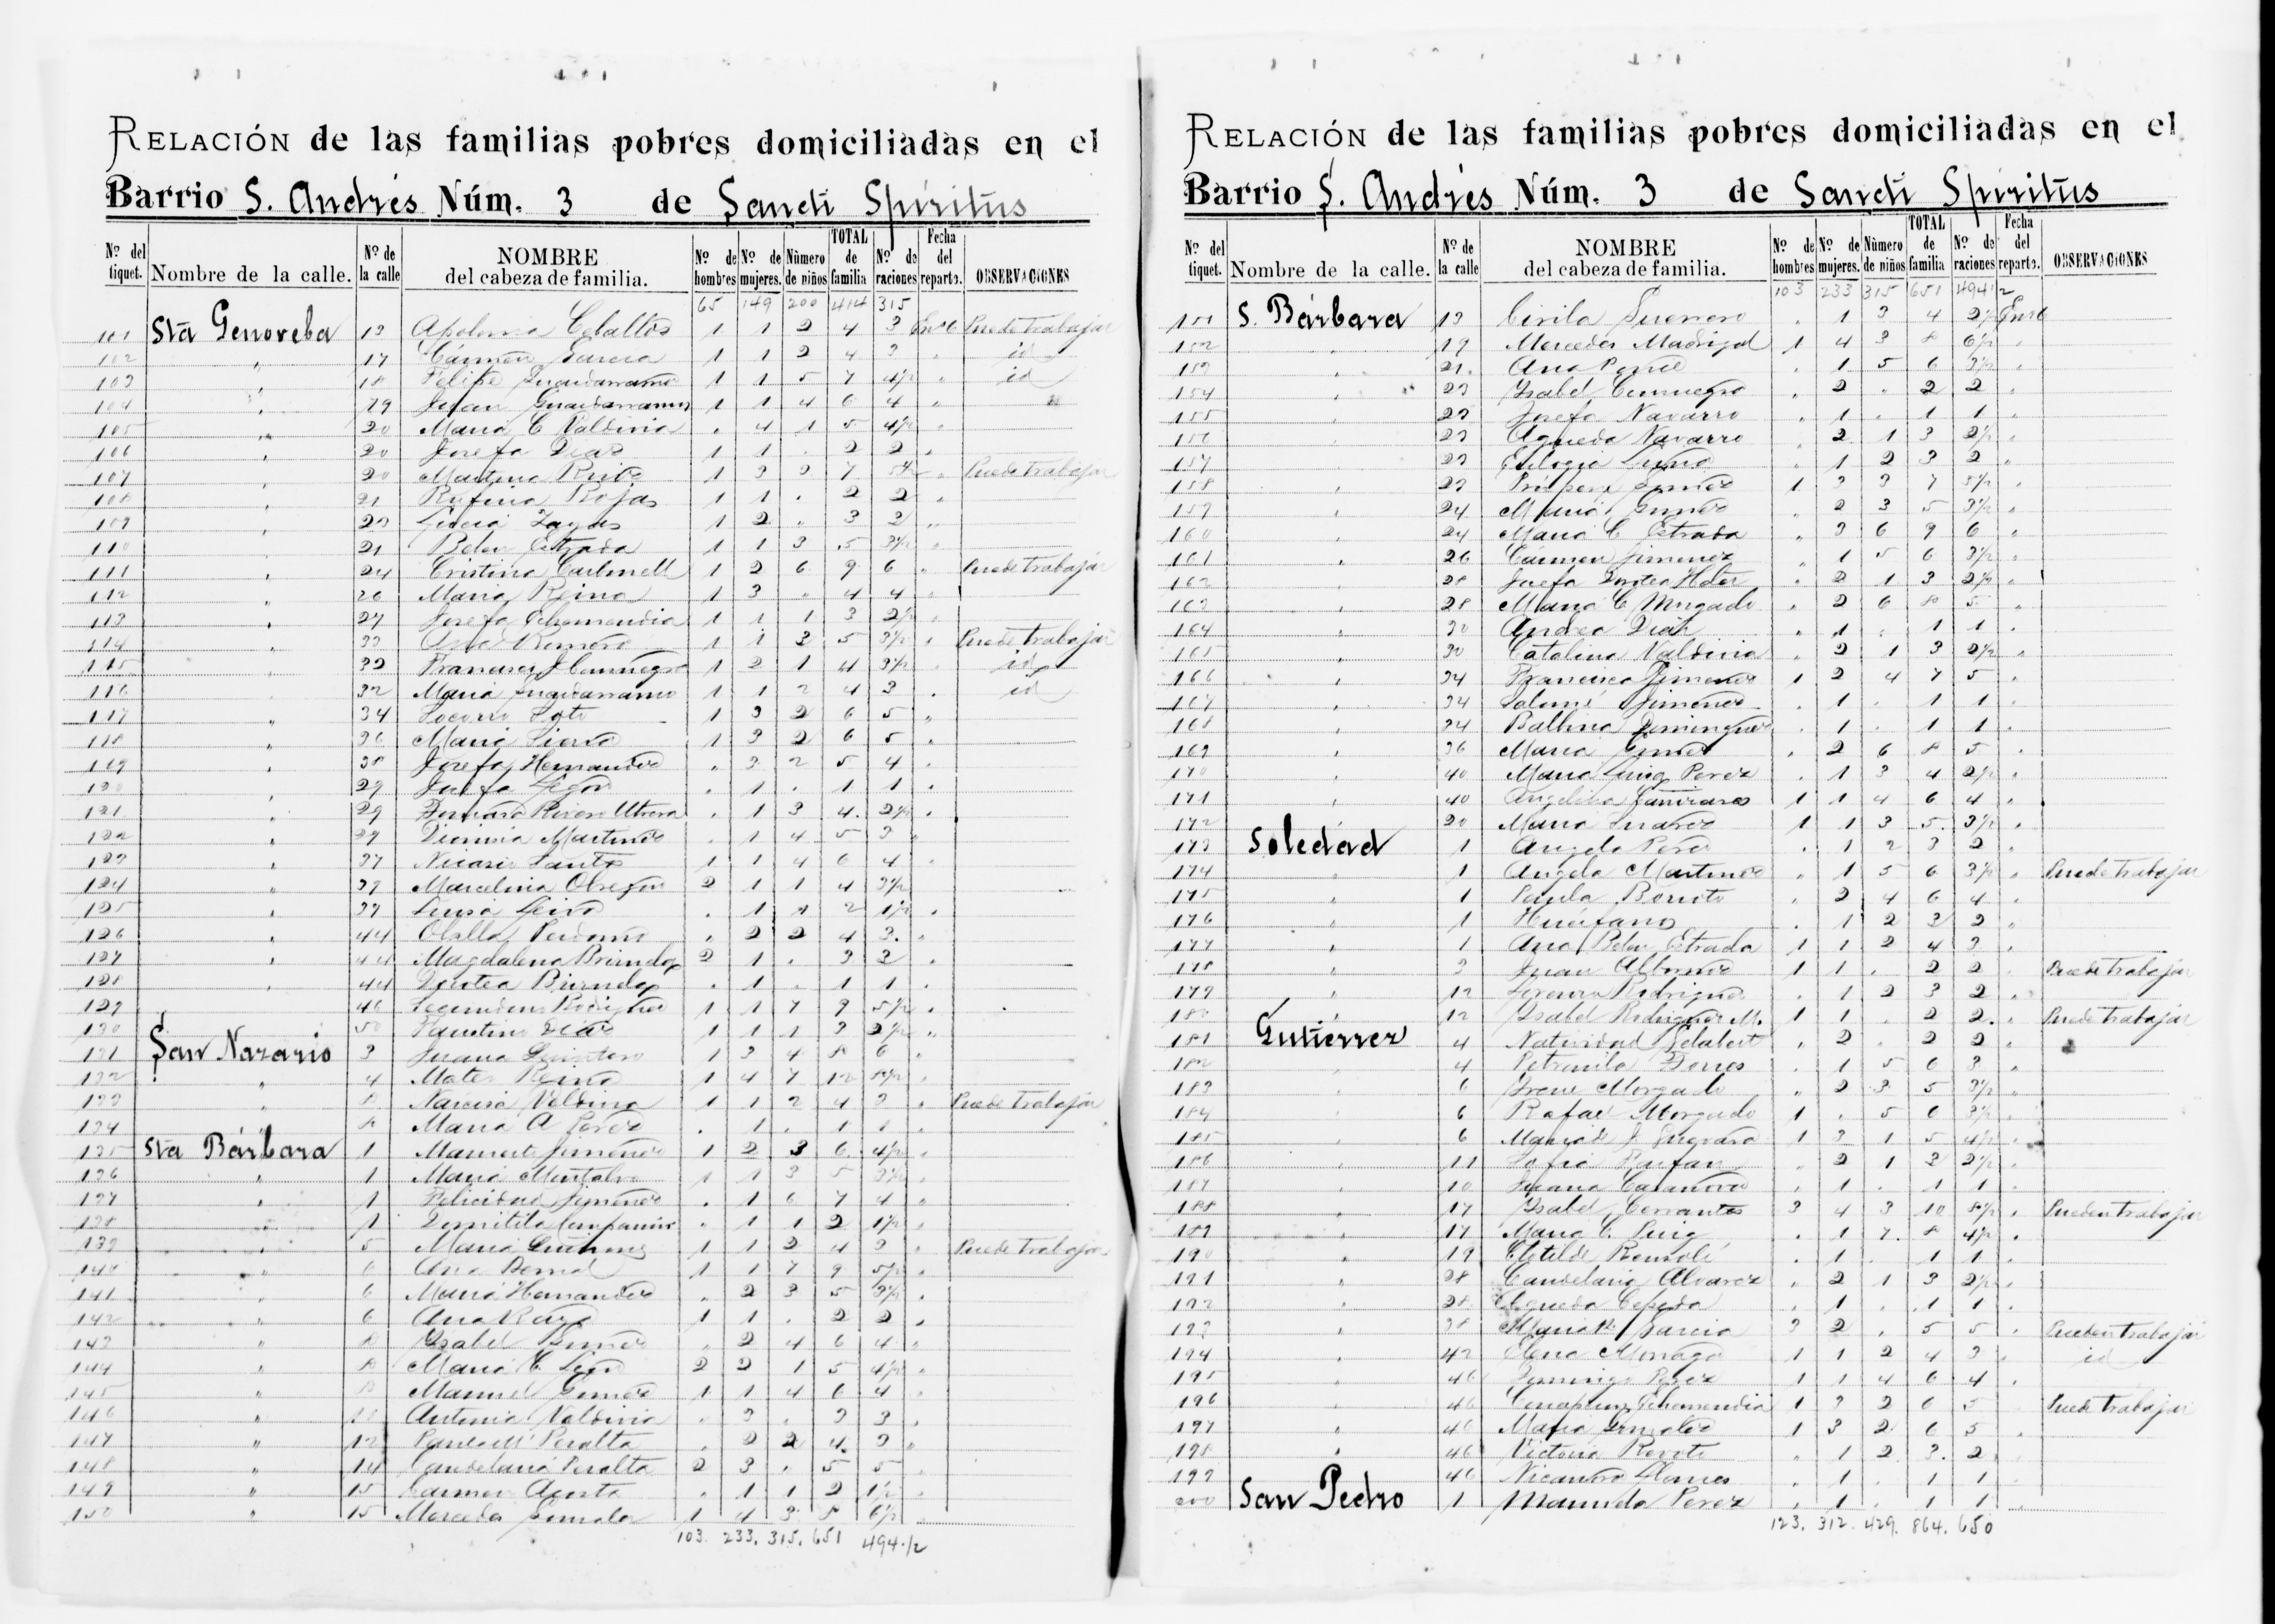 RELACIÓN de las familias pobres domiciliadas en el
Barrio S. Andrés Núm. 3 de Sancti Spíritus
Nº del tiquet. Nombre de la calle. Nº de la calle NOMBRE del cabeza de familia. Nº de hombres Nº de mujeres. Número de niños TOTAL de familia Nº de raciones Fecha del reparto. OBSERVACIONES
65 149 200 414 315
101 Sta Genoveba 13 Apolonia Ceballos 1 1 2 4 3 Puede trabajar
102 17 Cármen 1 1 2 4 3 id
103 18 Felipe 1 1 5 7 4 1/2 id
104 19 Juan 1 1 4 6 4
105 20 Maria C Valdivia 4 1 5 4 1/2
106 20 Josefa Dias 1 1 2 2
107 20 Martina 1 3 3 7 5 1/2 Puede trabajar
108 21 Rufina Rojas 1 1 2 2
109 1 2 3
110 21 Belen Estrada 1 1 3 5 3 1/2
111 24 Cristina 1 2 6 9 6 Puede trabajar
112 26 Maria Reina 1 3 4 4
113 27 Josefa Echemendia 1 1 1 3 2 1/2
114 33 Romero 1 1 3 5 3 1/2 Puede trabajar
115 32 Francisca J. 1 2 1 4 3 1/2 id
116 32 Maria 1 1 2 4 3 id
117 34 Socorro Soto 1 3 2 6 5
118 36 Maria 1 3 2 6 5
119 38 Josefa Hernandez 3 2 5 4
120 29 1 1 1
121 29 Utrera 1 3 4 2 1/2
122 Dionisia Martinez 1 4 5 3
123 37 Nicasio Santos 1 1 4 6 4
124 37 Marcelina Obregon 2 1 1 4 3 1/2
125 37 Luisa 1 1 2 1 1/2
126 44 Olalla Perdomo 2 2 4 3
127 44 Magdalena 2 1 3 3
128 44 Dorotea 1 1 1
129 46 1 1 7 9 5 1/2
130 50 Faustino Dias 1 1 1 3 2 1/2
131 San Nazario 3 Juana 1 3 4 8 6
132 4 Mateo Reina 1 4 7 12 8 1/2
133 8 Narcisa Valdivia 1 1 2 4 3 Puede trabajar
134 8 Maria A Perez 1 1 1
135 Sta Bárbara 1 Jimenez 1 2 3 6 4 1/2
136 1 Maria Montalvo 1 1 3 5 3 1/2
137 1 Felicidad Jimenez 1 6 7 4
138 1 Domitila 1 1 2 1 1/2
139 5 Maria 1 1 2 4 3 Puede trabajar
140 6 Ana Bernal 1 1 7 9 5 1/2
141 6 Maria Hernandez 2 3 5 3 1/2
142 6 Ana 1 1 2 2
143 8 Ysabel Gomez 2 4 6 4
144 8 Maria C. 2 2 1 5 4 1/2
145 8 Manuel Gomez 1 1 4 6 4
146 Antonia Valdivia 3 3 3
147 12 Peralta 2 2 4 3
148 14 Candelaria Peralta 2 3 5 5
149 15 Carmen Acosta 1 1 2 1 1/2
150 15 Mercedes 1 4 3 8 6 1/2
103. 233. 315. 651 494 1/2
RELACIÓN de las familias pobres domiciliadas en el
Barrio S. Andrés Núm. 3 de Sancti Spíritus
Nº del tiquet. Nombre de la calle. Nº de la calle NOMBRE del cabeza de familia. Nº de hombres Nº de mujeres. Número de niños TOTAL de familia Nº de raciones Fecha del reparto. OBSERVACIONES
103 233 315 651 494 1/2
151 S. Bárbara 13 Cirila Guerrero 1 3 4 2 1/2
152 19 Mercedes Madrigal 1 4 3 8 6 1/2
153 21 Ana 1 5 6 3 1/2
154 23 Ysabel 2 2 2
155 23 Josefa Navarro 1 1 1
156 23 Agueda Navarro 2 1 3 2 1/2
157 23 Eulogia 1 2 3 2
158 23 Gomez 1 3 3 7 5 1/2
159 24 Maria Gomez 2 3 5 3 1/2
160 24 Maria C Estrada 3 6 9 6
161 26 Cármen Jimenez 1 5 6 3 1/2
162 28 Josefa 2 1 3 2 1/2
163 28 Maria C Morgado 2 6 8 5
164 30 Andrea Diaz 1 1 1
165 30 Catalina Valdivia 2 1 3 2 1/2
166 34 Francisca Jimenez 1 2 4 7 5
167 34 Salomé Jimenez 1 1 1
168 34 Balbina Dominguez 1 1 1
169 36 Maria Gomez 2 6 8 5
170 40 Maria Perez 1 3 4 2 1/2
171 40 Angelina Cañizares 1 1 4 6 4
172 20 Maria Suarez 1 1 3 5 3 1/2
173 Soledad 1 Angela Perez 1 2 3 2
174 1 Angela Martinez 1 5 6 3 1/2 Puede trabajar
175 1 Paula 2 4 6 4
176 1 Huérfanos 1 2 3 2
177 1 Ana Belen Estrada 1 1 2 4 3
178 3 Juan 1 1 2 2 Puede trabajar
179 12 Lorenza Rodriguez 1 2 3 2
180 12 Ysabel Rodriguez M. 1 1 2 2 Puede trabajar
181 Gutierrez 4 Natividad Gelabert 2 2 2
182 4 Petronila 1 5 6 3
183 6 Irene Morgado 2 3 5 3 1/2
184 6 Rafael Morgado 1 5 6 3 1/2
185 6 1 3 1 5 4 1/2
186 11 Sofia 2 1 3 2 1/2
187 10 Juana Casanova 1 1 1
188 17 Ysabel Cervantes 3 4 3 10 8 1/2 Pueden trabajar
189 17 Maria C. Puig 1 7 8 4 1/2
190 19 Clotilde 1 1 1
191 28 Candelaria Alvarez 2 1 3 2 1/2
192 28 Agueda Cepeda 1 1 1
193 38 Maria Garcia 3 2 5 5 Pueden trabajar
194 42 Elena 1 1 2 4 3 id
195 46 Domingo Perez 1 1 4 6 4
196 46 Echemendia 1 3 2 6 5 Puede trabajar
197 46 Maria Gonzalez 1 3 2 6 5
198 46 Victoria 1 2 3 2
199 46 Llanes 1 1 1
200 San Pedro 1 Manuela Perez 1 1 1
123. 312. 429. 864. 650